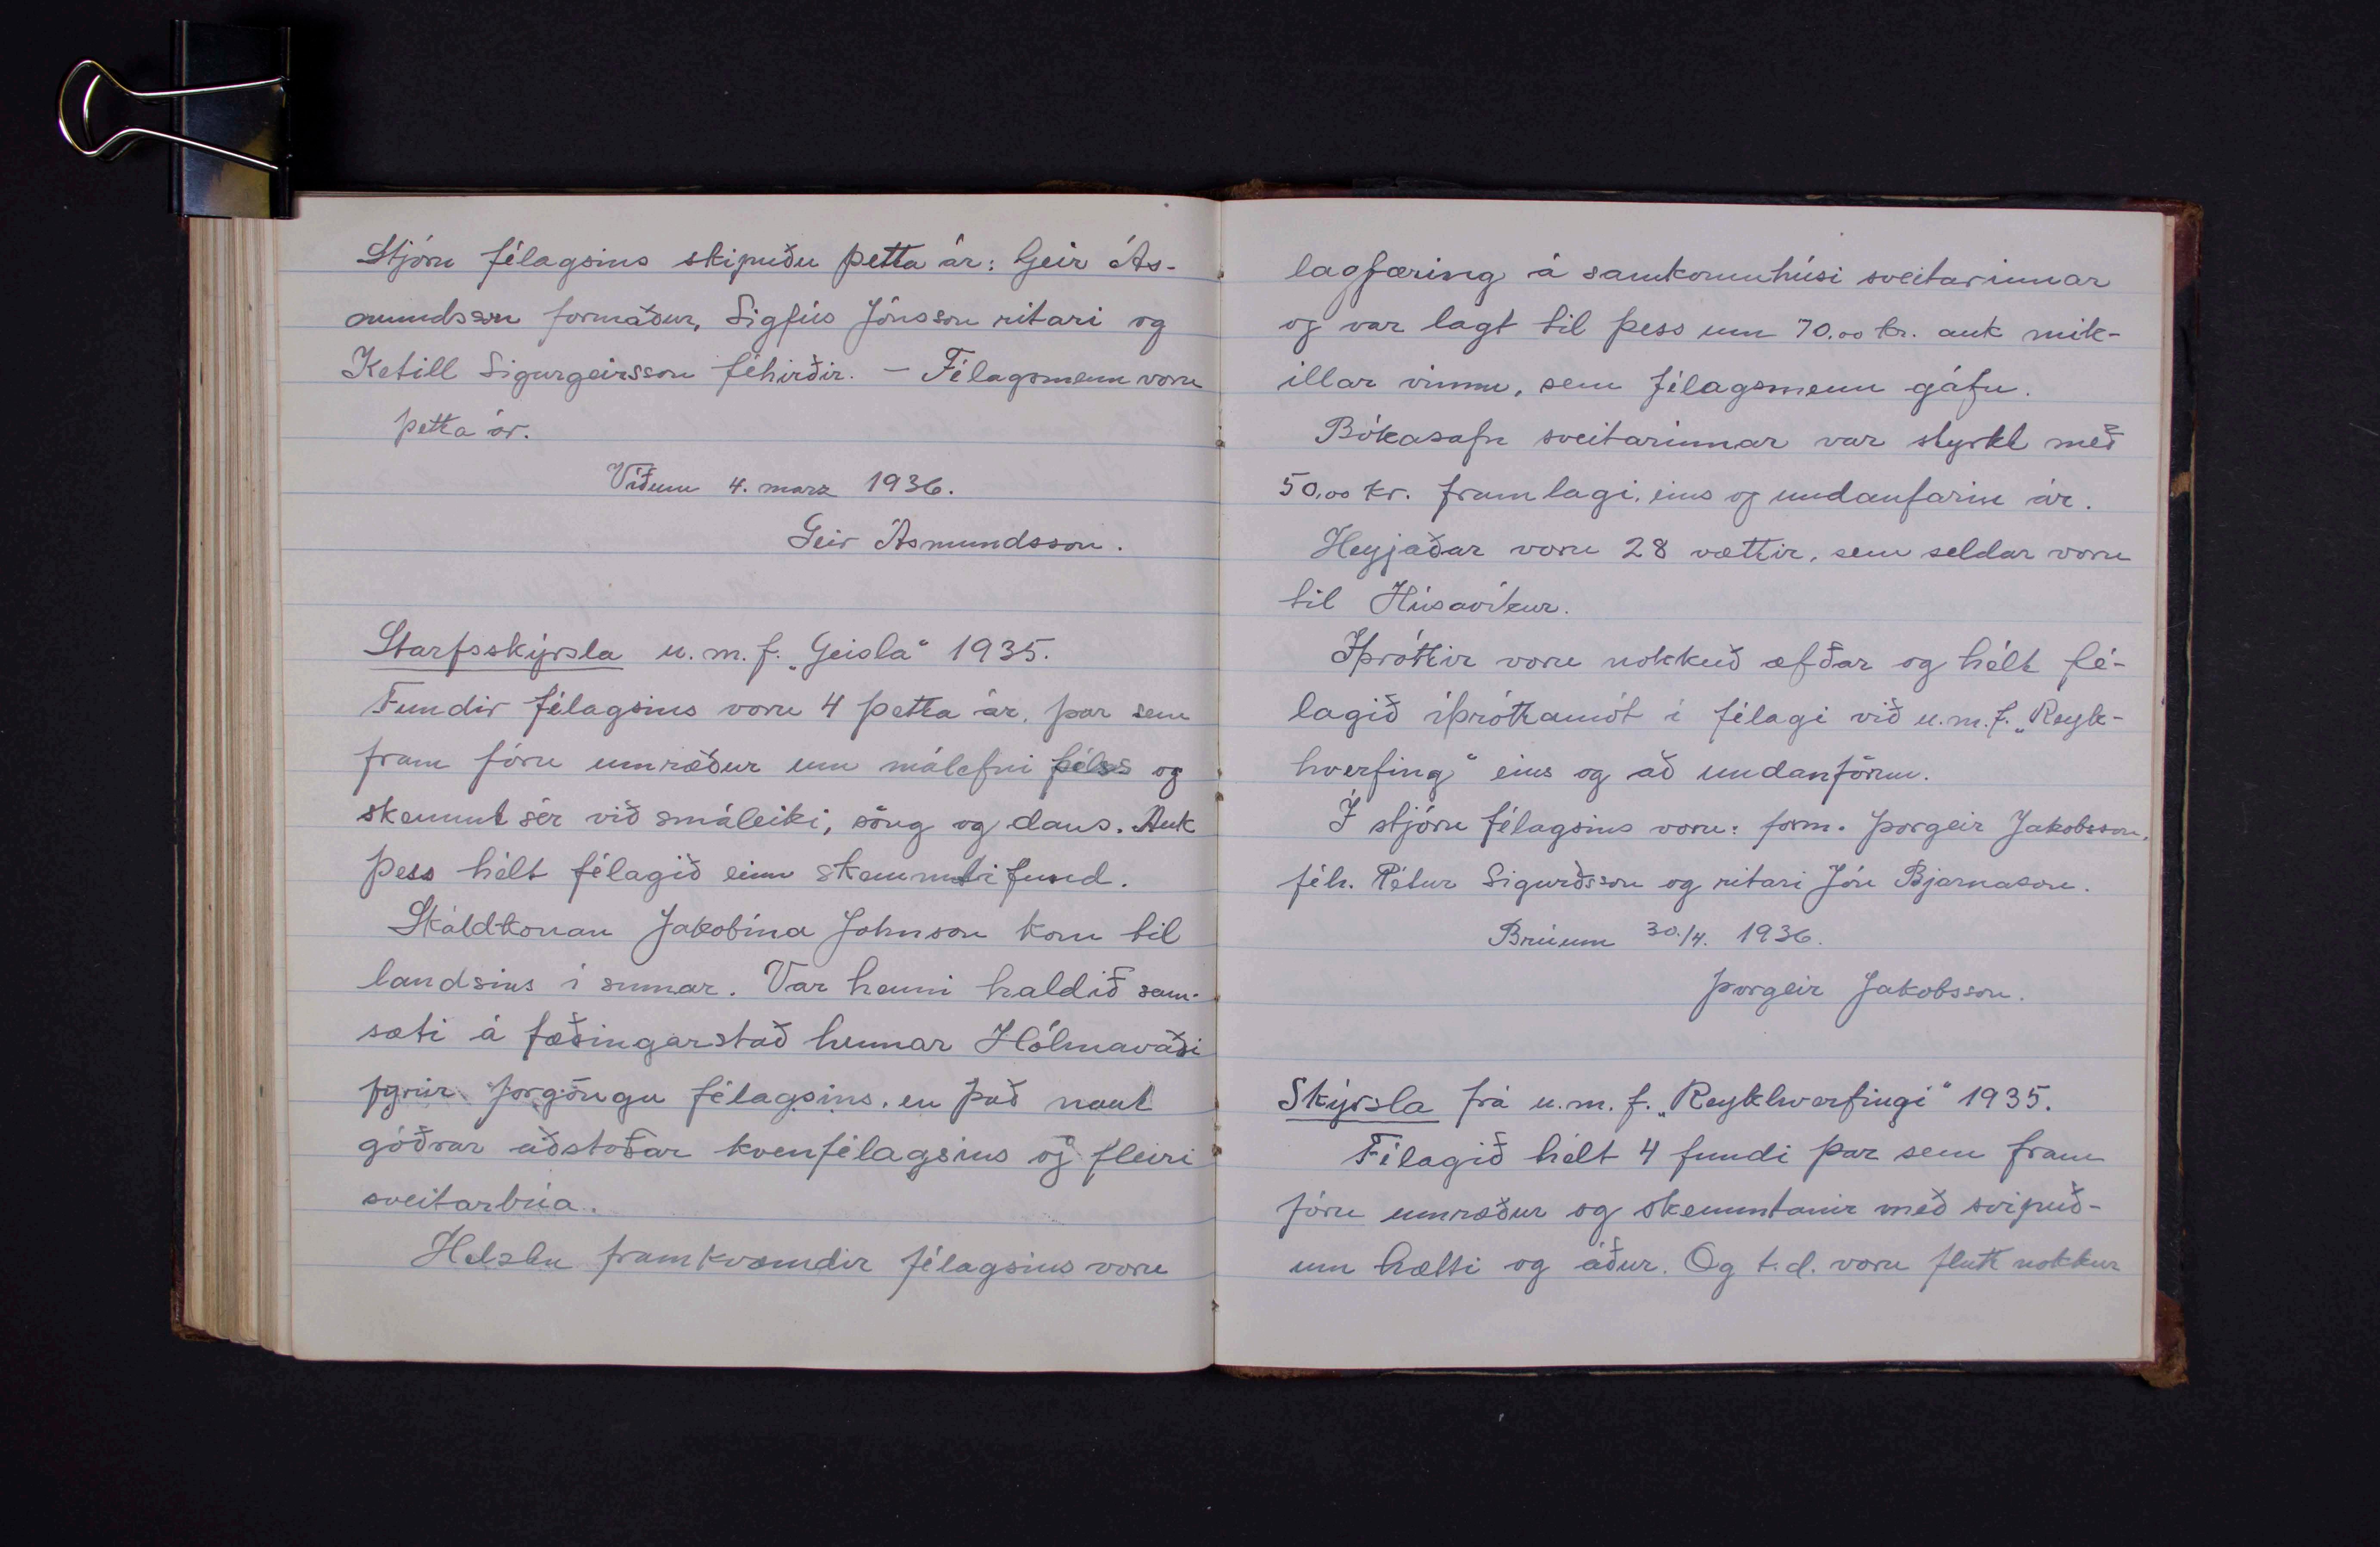 Stjórn félagsins skipuðu þetta ár: Geir Ás-
mundsson formaður, Sigfús Jónsson ritari og
Ketill Sigurgeirsson féhirðir. – Félagsmenn voru
þetta ár.
Víðum 4. marz 1936.
Geir Ásmundsson.
Starfsskýrsla u.m.f. „Geisla" 1935.
Fundir félagsins voru 4 þetta ár, þar sem
fram fóru umræður um málefni félss og
skemmt sér við smáleiki, söng og dans. Auk
þess hélt félagið einn skemmtifund.
Skáldkonan Jakobína Johnson kom til
landsins í sumar. Var henni haldið sam-
sæti á fæðingarstað hennar Hólmavaði
fyrir forgöngu félagsins, en það naut
góðrar aðstoðar kvenfélagsins og fleiri
sveitarbúa.
Helztu framkvæmdir félagsins voru
lagfæring á samkomuhúsi sveitarinnar
og var lagt til þess um 70.00 kr. auk mik-
illar vinnu, sem félagsmenn gáfu.
Bókasafn sveitarinnar var styrkt með
50.00 kr. framlagi, eins og undanfarin ár.
Heyjaðar voru 28 vættir, sem seldar voru
til Húsavíkur.
Íþróttir voru nokkuð æfðar og hélt fé-
lagið íþróttamót í félagi við u.m.f. „Reyk-
hverfing" eins og að undanförnu.
Í stjórn félagsins voru: form. Þorgeir Jakobsson,
féh. Pétur Sigurðsson og ritari Jón Bjarnason.
Brúum 30./4. 1936.
Þorgeir Jakobsson.
Skýrsla frá u.m.f. „Reykhverfingi" 1935.
Félagið hélt 4 fundi þar sem fram
fóru umræður og skemmtanir með svipuð-
um hætti og áður. Og t.d. voru flutt nokkur